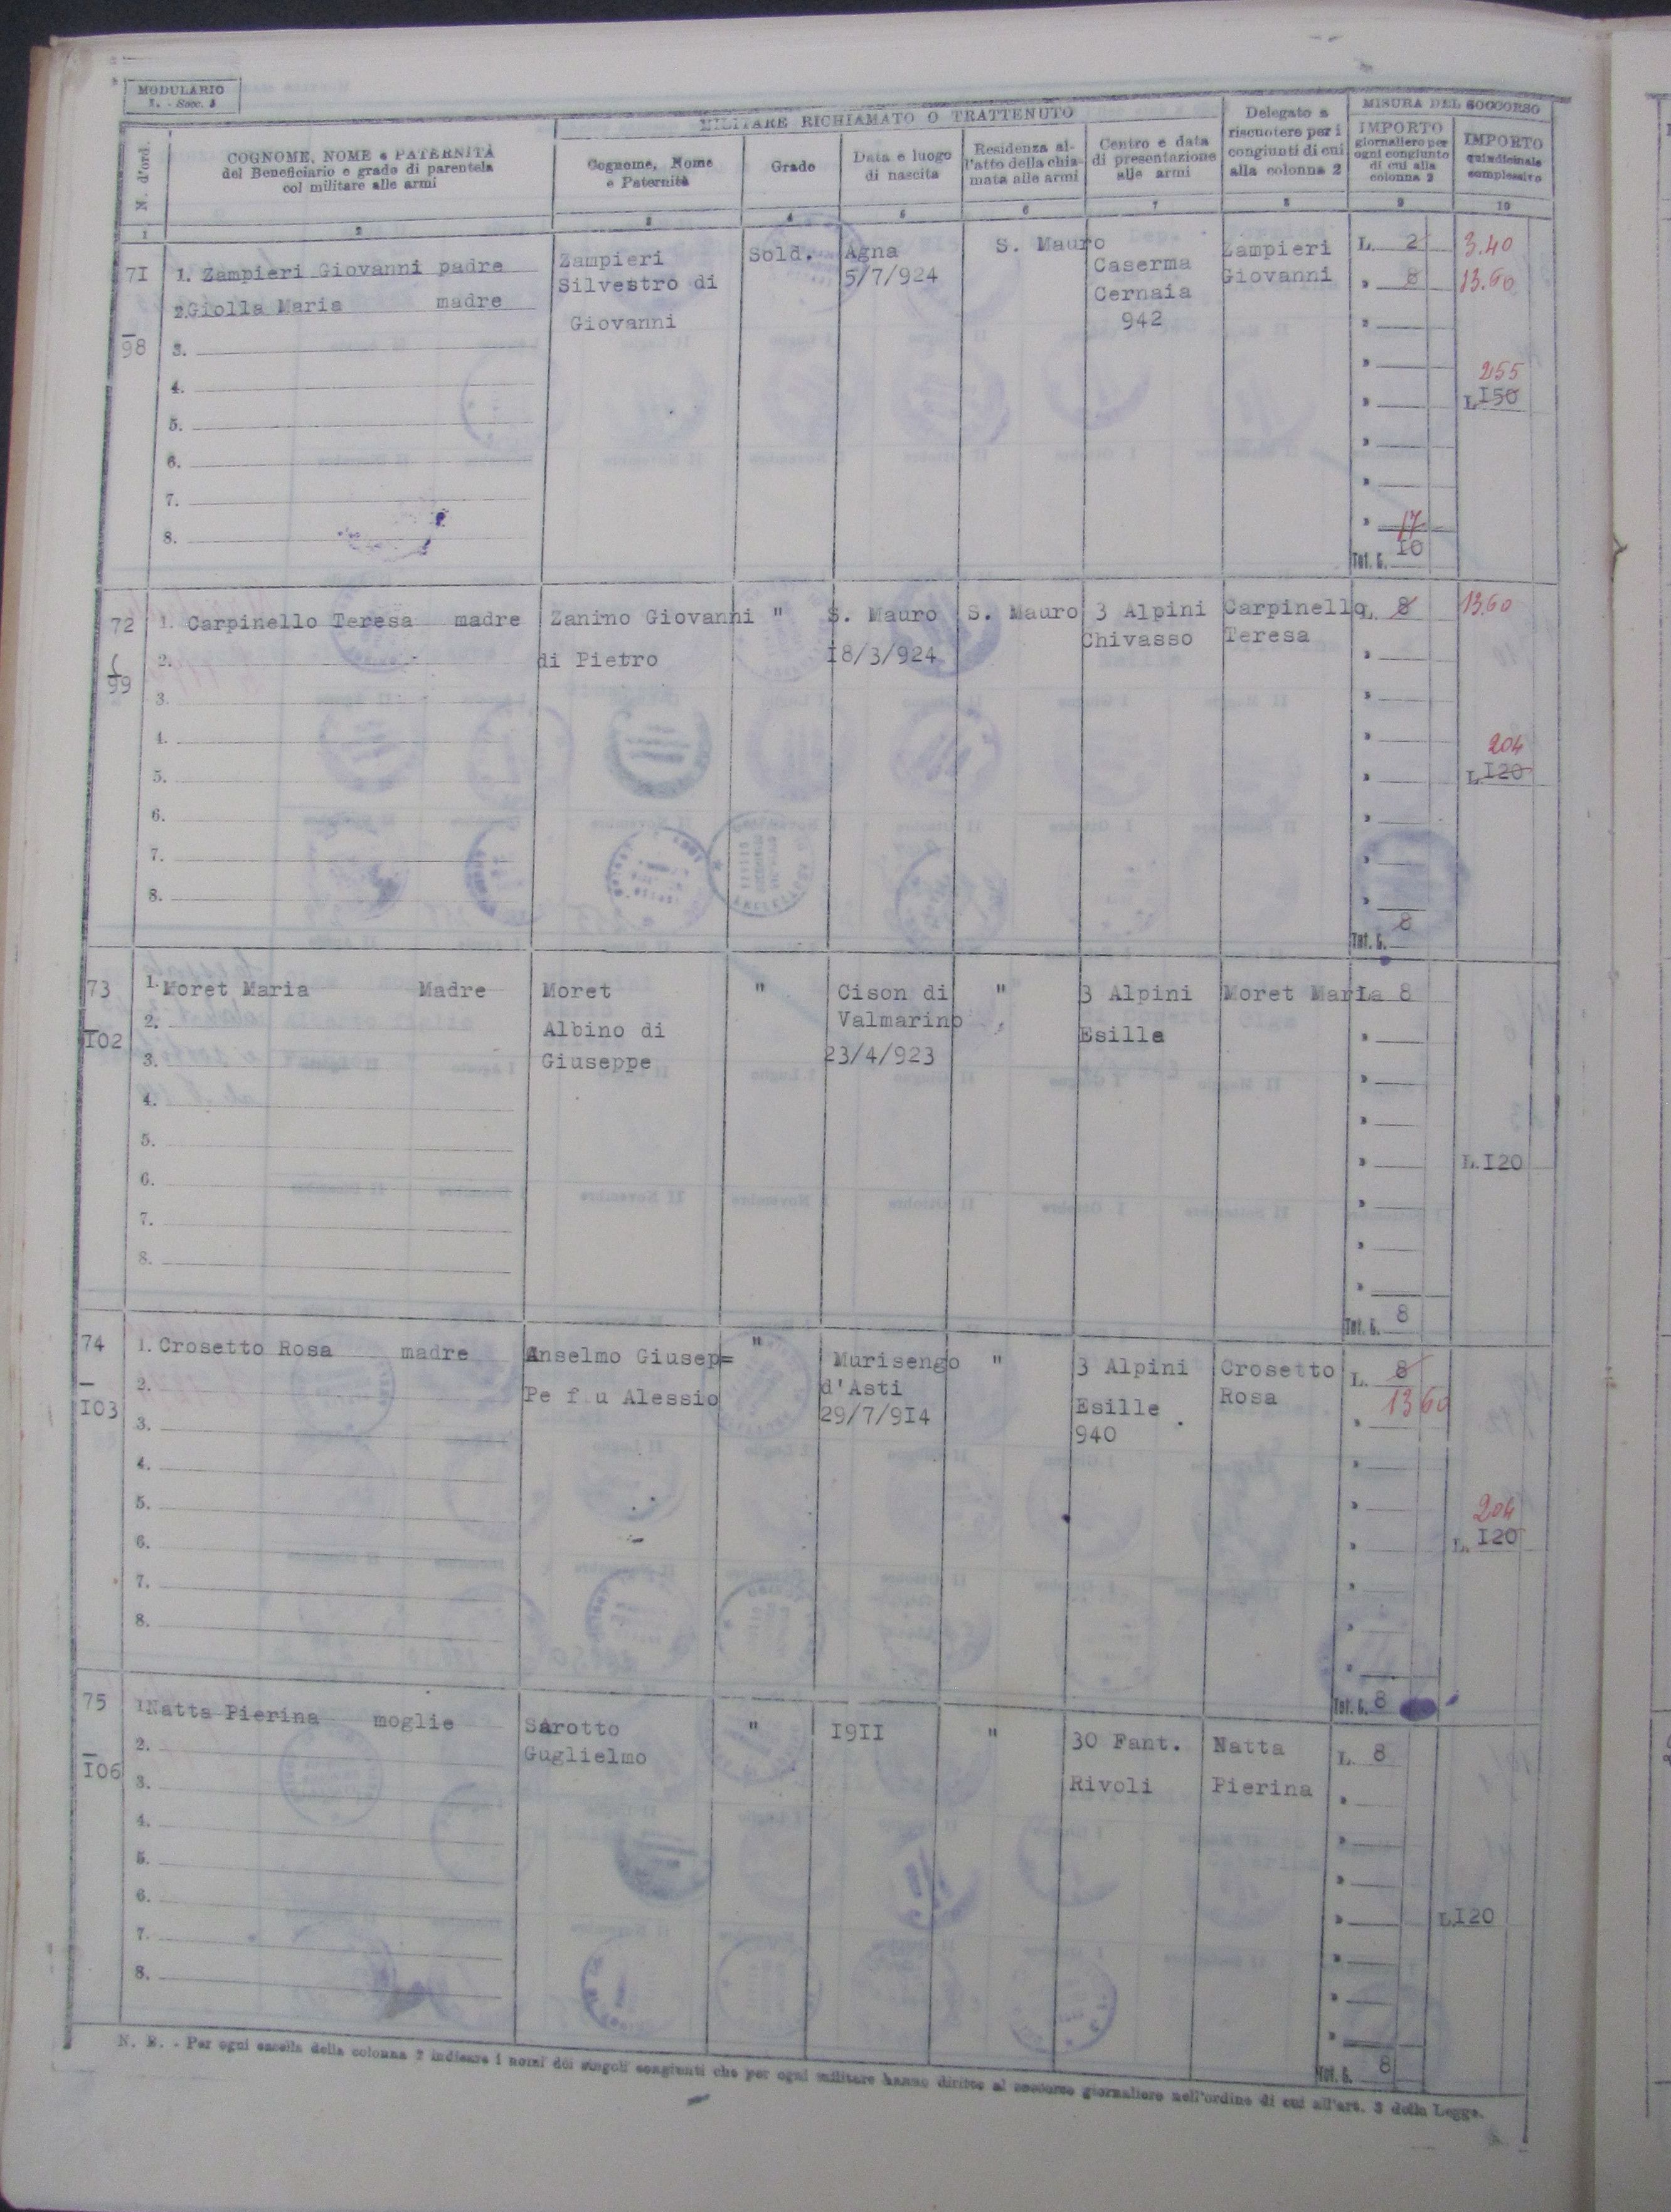 MODULARIO
I. - Socc. 3
N. d'ord.
COGNOME, NOME e PATERNITÀ
del Beneficiario e grado di parentela
col militare alle armi
MILITARE RICHIAMATO O TRATTENUTO
Cognome, Nome
e Paternità
Grado
Data e luogo
di nascita
Residenza al-
l'atto della chia-
mata alle armi
Centro e data
di presentazione
alle armi
Delegato a
riscuotere per i
congiunti di cui
alla colonna 2
MISURA DEL SOCCORSO
IMPORTO
giornaliero per
ogni congiunto
di cui alla
colonna 2
IMPORTO
quindicinale
complessivo
1 2 3 4 5 6 7 8 9 10
71
98
1. Zampieri Giovanni padre
2. Giolla Maria madre
3.
4.
5.
6.
7.
8.
Zampieri
Silvestro di
Giovanni
Sold.
Agna
5/7/924
S. Mauro
Caserma
Cernaia
942
Zampieri
Giovanni
L. 2
8
17
Tot. G. 10
3.40
13.60
255
L. 150
72
99
1. Carpinello Teresa madre
2.
3.
4.
5.
6.
7.
8.
Zanino Giovanni
di Pietro
"
S. Mauro
18/3/924
S. Mauro
3 Alpini
Chivasso
Carpinello
Teresa
L. 8
Tot. G. 8
13.60
204
L. 120
73
102
1. Moret Maria Madre
2.
3.
4.
5.
6.
7.
8.
Moret
Albino di
Giuseppe
"
Cison di
Valmarino
23/4/923
"
3 Alpini
Esille
Moret Maria
L. 8
Tot. G. 8
L. 120
74
103
1. Crosetto Rosa madre
2.
3.
4.
5.
6.
7.
8.
Anselmo Giusep=
Pe fu Alessio
"
Murisengo
d'Asti
29/7/914
"
3 Alpini
Esille
940
Crosetto
Rosa
L. 8
13 60
Tot. G. 8
204
L. 120
75
106
1. Natta Pierina moglie
2.
3.
4.
5.
6.
7.
8.
Sarotto
Guglielmo
"
1911
"
30 Fant.
Rivoli
Natta
Pierina
L. 8
Tot. G. 8
L. 120
N. B. - Per ogni casella della colonna 2 indicare i nomi dei singoli congiunti che per ogni militare hanno diritto al soccorso giornaliero nell'ordine di cui all'art. 3 della Legge.